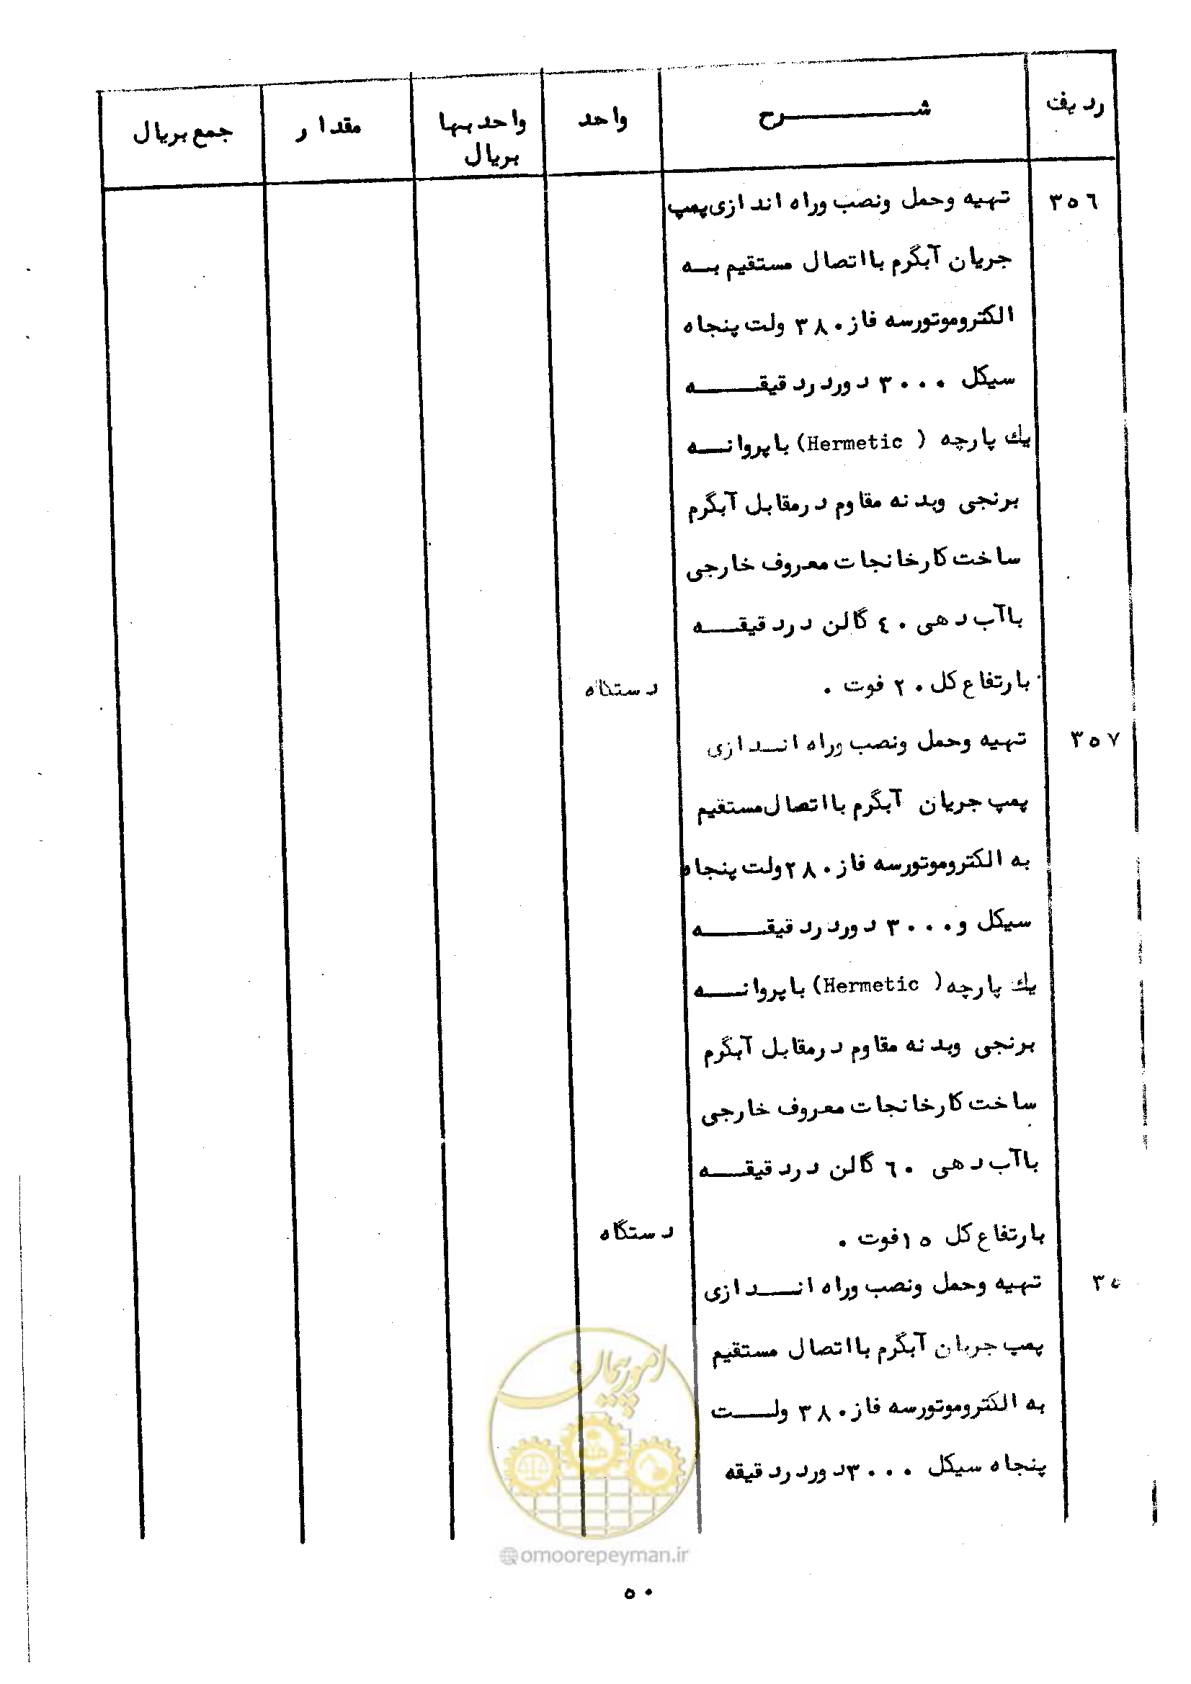 ردیف شـــــــرح واحد واحد بها بریال مقدار جمع بریال
۳۵۶ تهیه وحمل ونصب وراه اندازی پمپ
جریان آبگرم با اتصال مستقیم بــه
الکتروموتورسه فاز ۳۸۰ ولت پنجاه
سیکل ۳۰۰۰ دوردردقیقـــــه
یك پارچه ( Hermetic) با پروانـــه
برنجی وبدنه مقاوم درمقابل آبگرم
ساخت کارخانجات معروف خارجی
با آب دهی ۴۰ گالن دردقیقـــه
بارتفاع کل ۲۰ فوت . دستگاه
۳۵۷ تهیه وحمل ونصب وراه انـــدازی
پمپ جریان آبگرم با اتصال مستقیم
به الکتروموتورسه فاز ۲۸۰ ولت پنجاه
سیکل و ۳۰۰۰ دوردردقیقـــــه
یك پارچه ( Hermetic) با پروانـــه
برنجی وبدنه مقاوم درمقابل آبگرم
ساخت کارخانجات معروف خارجی
با آب دهی ۶۰ گالن دردقیقـــه
بارتفاع کل ۱۵ فوت . دستگاه
۳۵ تهیه وحمل ونصب وراه انـــدازی
پمپ جریان آبگرم با اتصال مستقیم
به الکتروموتورسه فاز ۳۸۰ ولـــت
پنجاه سیکل ۳۰۰۰ دوردردقیقه
امور پیمان
omoorepeyman.ir
۵۰